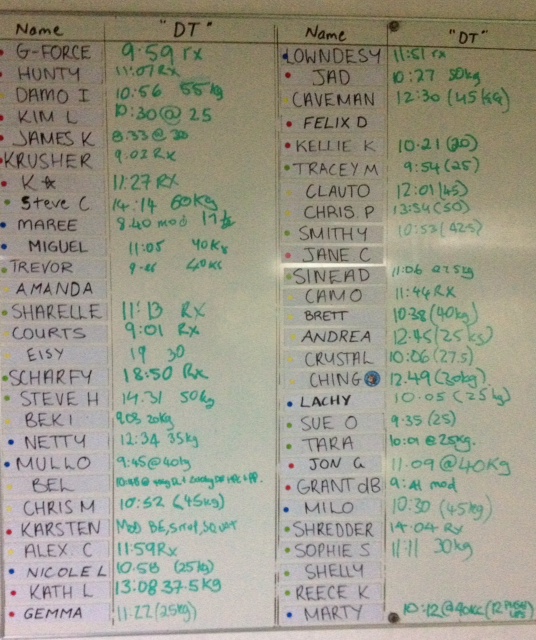 Name "DT"
G-FORCE 9:59 rx
HUNTY 11:07 RX
DAMO I 10:56 55kg
KIM L 10:30 @ 25
JAMES K 8:33 @ 30
KRUSHER 9.03 RX
K 11:27 RX
Steve C 14:14 60kg
MAREE 8.40 mod
MIGUEL 11:05 40kg
TREVOR
AMANDA
SHARELLE 11:13 RX
COURTS 9:01 RX
EISY 19 30
SCHARFY 18:50 Rx
STEVE H 14.31 50kg
BEKI 20kg
NETTY 12:34 35kg
MULLO 9:45@40kg
BEL
CHRIS M 10:52 (45kg)
KARSTEN Mod BE,
ALEX. C 11:59Rx
NICOLE L 10:58 (25kg)
KATH L 13:08 37.5kg
GEMMA 11:22(25kg)
Name "DT"
LOWNDESY 11:51 rx
JAD 10:27 50kg
CAVEMAN 12:30 (45kg)
FELIX D
KELLIE K 10:21 (20)
TRACEY M 9:54(25)
CLAUTO 12:01(45)
CHRIS. P 13:54(50)
SMITHY 10:53
JANE C
SINEAD 11:06
CAMO 11:44 RX
BRETT 10:38 (40kg)
ANDREA 12:45(25kg)
CRUSTAL 10:06 (27.5)
CHING 12.49 (30kg)
LACHY 10:05 (25kg)
SUE O 9:35 (25)
TARA 10:01 @25kg.
JON G 11.09 @40Kg
GRANT dB 9:41 mod
MILO 10:30 (45kg)
SHREDDER 14:04 Rx
SOPHIE S 11:11 30kg
SHELLY
REECE K
MARTY 10:12@40KG(12